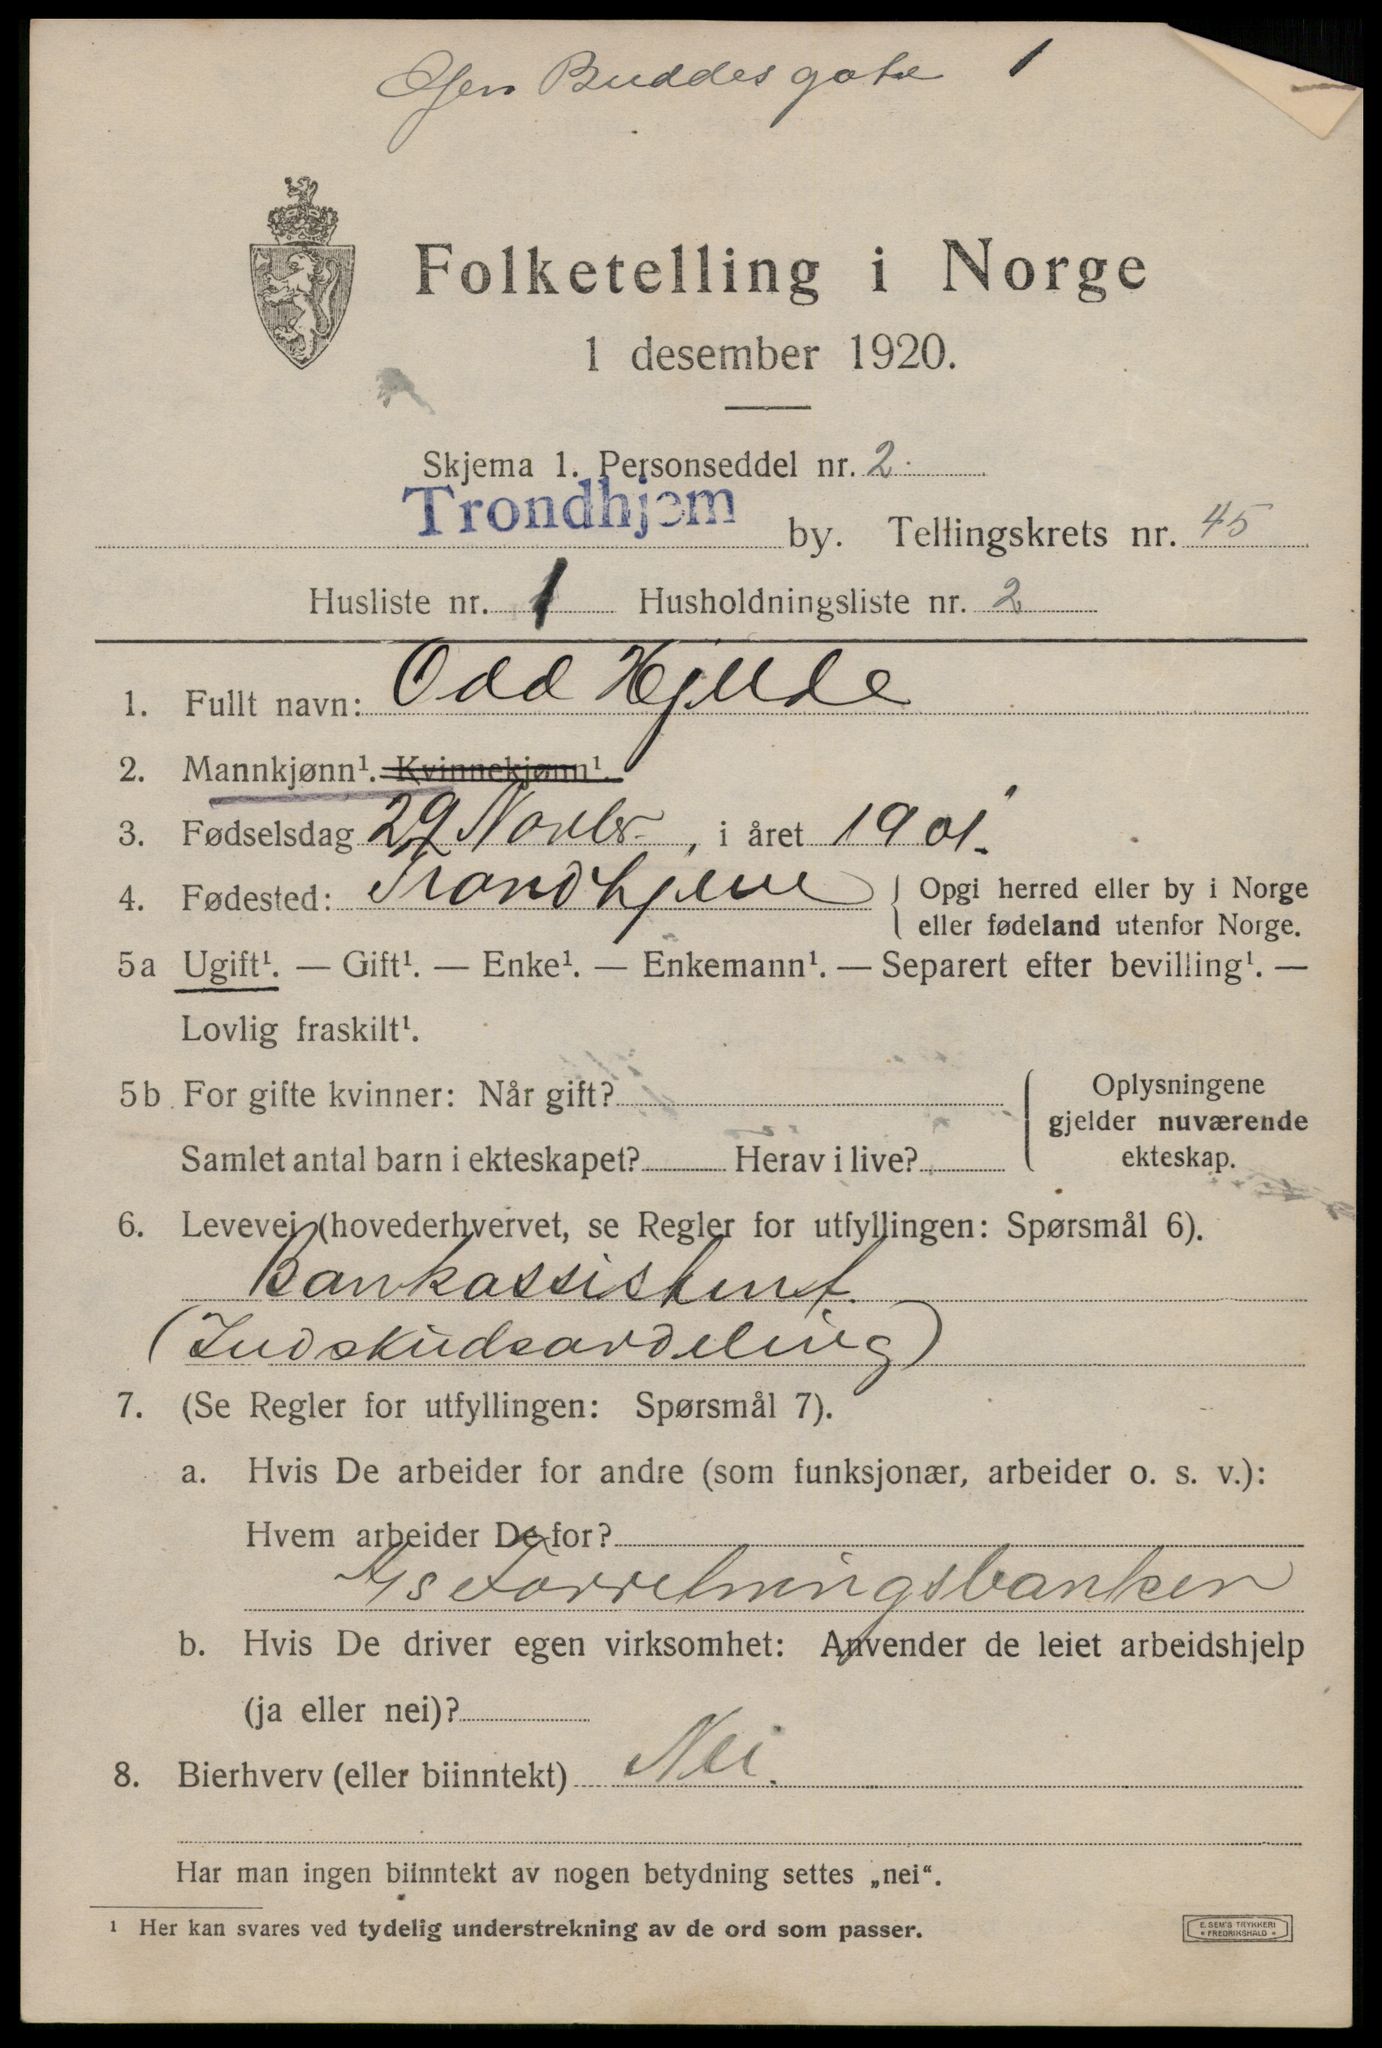 Gen Buddes gate 1
Folketelling i Norge
1 desember 1920.
Skjema 1. Personseddel nr. 2.
Trondhjem by. Tellingskrets nr. 45
Husliste nr. 1 Husholdningsliste nr. 2
1. Fullt navn: Odd Hjelde
2. Mannkjønn¹. Kvinnekjønn¹.
3. Fødselsdag 29 Novbr., i året 1901.
4. Fødested: Trondhjem { Opgi herred eller by i Norge
eller fødeland utenfor Norge.
5a Ugift¹. — Gift¹. — Enke¹. — Enkemann¹. — Separert efter bevilling¹. —
Lovlig fraskilt¹.
5b For gifte kvinner: Når gift?
Samlet antal barn i ekteskapet? Herav i live?
Oplysningene
gjelder nuværende
ekteskap.
6. Levevei (hovederhvervet, se Regler for utfyllingen: Spørsmål 6).
Bankassistent.
(Indskudsavdeling)
7. (Se Regler for utfyllingen: Spørsmål 7).
a. Hvis De arbeider for andre (som funksjonær, arbeider o. s. v.):
Hvem arbeider De for?
A/s Forretningsbanken
b. Hvis De driver egen virksomhet: Anvender de leiet arbeidshjelp
(ja eller nei)?
8. Bierhverv (eller biinntekt) Nei.
Har man ingen biinntekt av nogen betydning settes „nei“.
¹ Her kan svares ved tydelig understrekning av de ord som passer.
E. SEM'S TRYKKERI
FREDRIKSHALD